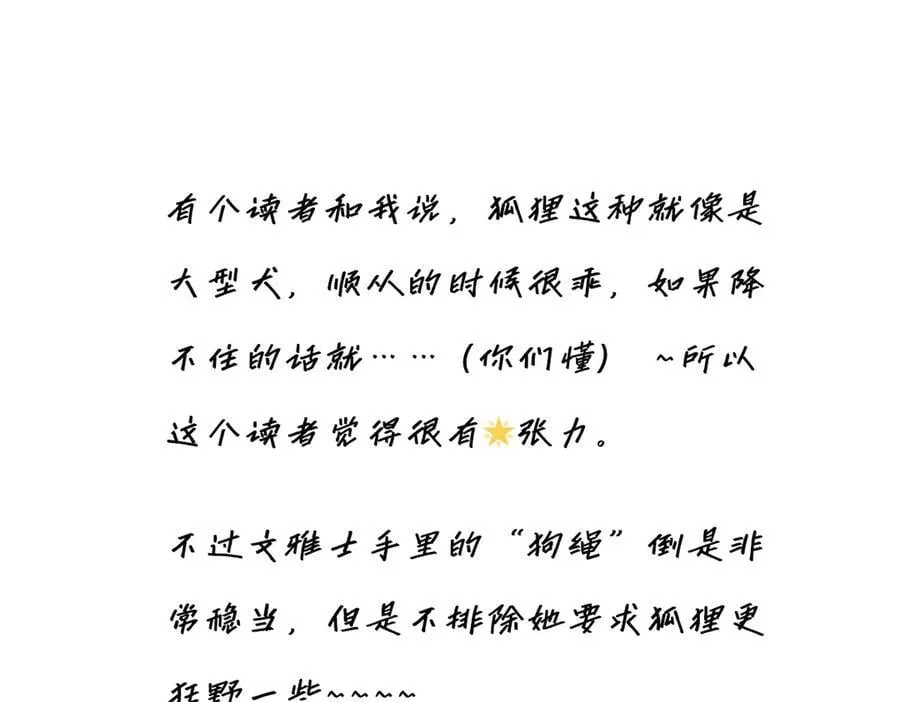 有个读者和我说，狐狸这种就像是
大型犬，顺从的时候很乖，如果降
不住的话就……（你们懂） ~所以
这个读者觉得很有🌟张力。
不过文雅士手里的“狗绳”倒是非
常稳当，但是不排除她要求狐狸更
狂野一些~~~~